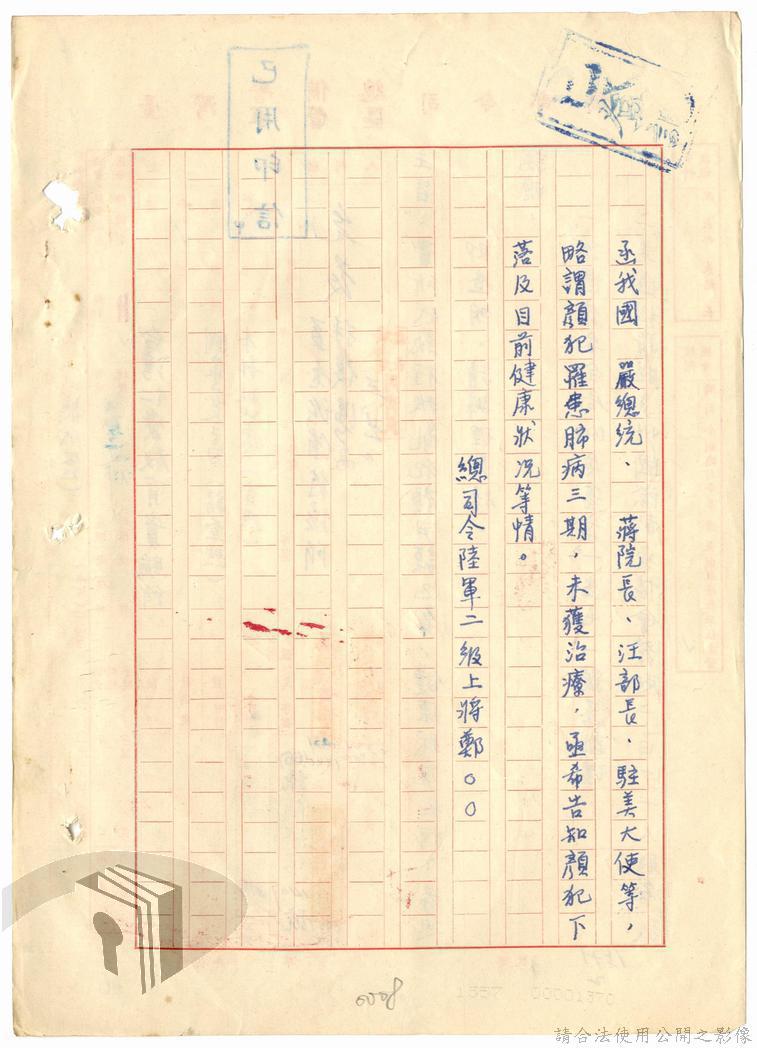 函我國　嚴總統、　蔣院長、汪部長、駐美大使等，
略謂顏犯罹患肺病三期，未獲治療，亟希告知顏犯下
落及目前健康狀况等情。
總司令陸軍二級上將鄭○○
已用印信
0008
1557 00001370
請合法使用公開之影像